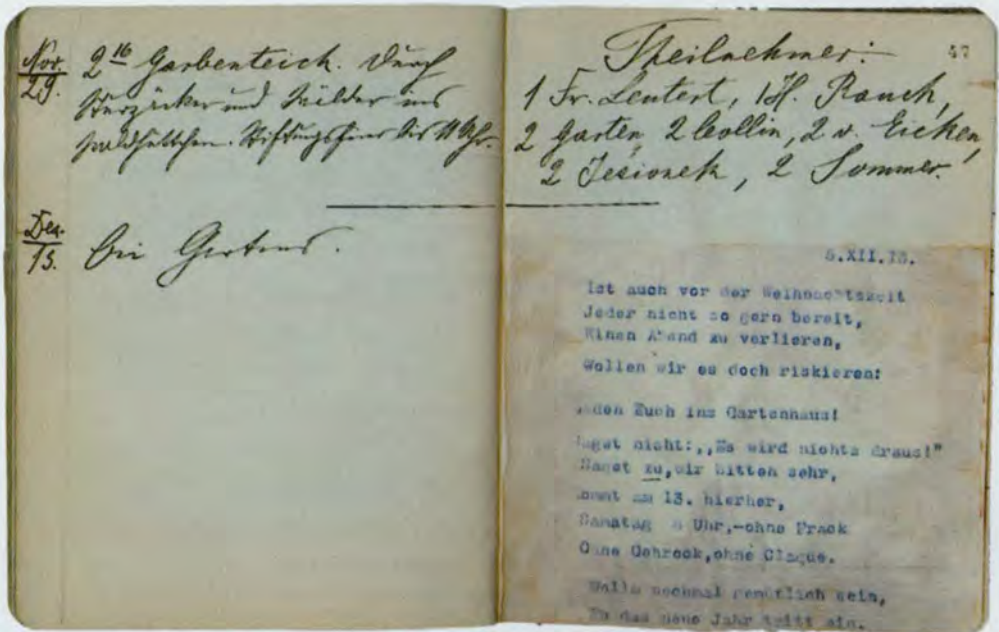 Nov. 29. 2 16 Garbenteich. Durch
Sturzäcker und Wälder ins
Waldhüttchen. Stiftungsfeier bis 11 Uhr.
Dez. 13. Bei Gartens.
47
Theilnehmer:
1 Fr. Leutert, 1 H. Rauch,
2 Garten, 2 Collin, 2 v. Eicken,
2 Jesionek, 2 Sommer.
5.XII.13.
Ist auch vor der Weihnachtszeit
Jeder nicht so gern bereit,
Einen Abend zu verlieren,
Wollen wir es doch riskieren:
Euch ins Gartenhaus!
Saget nicht:,,Es wird nichts draus!"
Saget zu,wir bitten sehr,
Kommt am 13. hierher,
Samstag Uhr,-ohne Frack
Ohne Gehrock,ohne Claque.
nochmal gemütlich sein,
Eh das neue Jahr tritt ein.